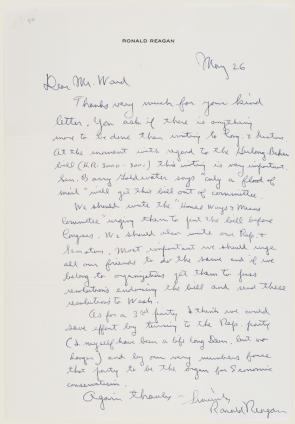 RONALD REAGAN
May 26
Dear Mr. Ward
Thanks very much for your kind
letter. You ask if there is anything
more to be done than writing to Cong. & Senators
At the moment with regard to the Herlong Baker
bill (H.R. 3000 - 3001) this writing is very important.
Sen. Barry Goldwater says "only a flood of
mail" will get this bill out of committee.
We should write the "House Ways & Means
Committee" urging them to put the bill before
Congress. We should also write our Rep. &
Senators. Most important we should urge
all our friends to do the same and if we
belong to organizations get them to pass
resolutions endorsing the bill and send these
resolutions to Wash.
As for a 3rd party, I think we could
save effort by turning to the Rep. party
(I myself have been a life long Dem. but no
longer) and by our very numbers force
that party to be the organ for Economic
conservatism.
Again thanks - Sincerely
Ronald Reagan